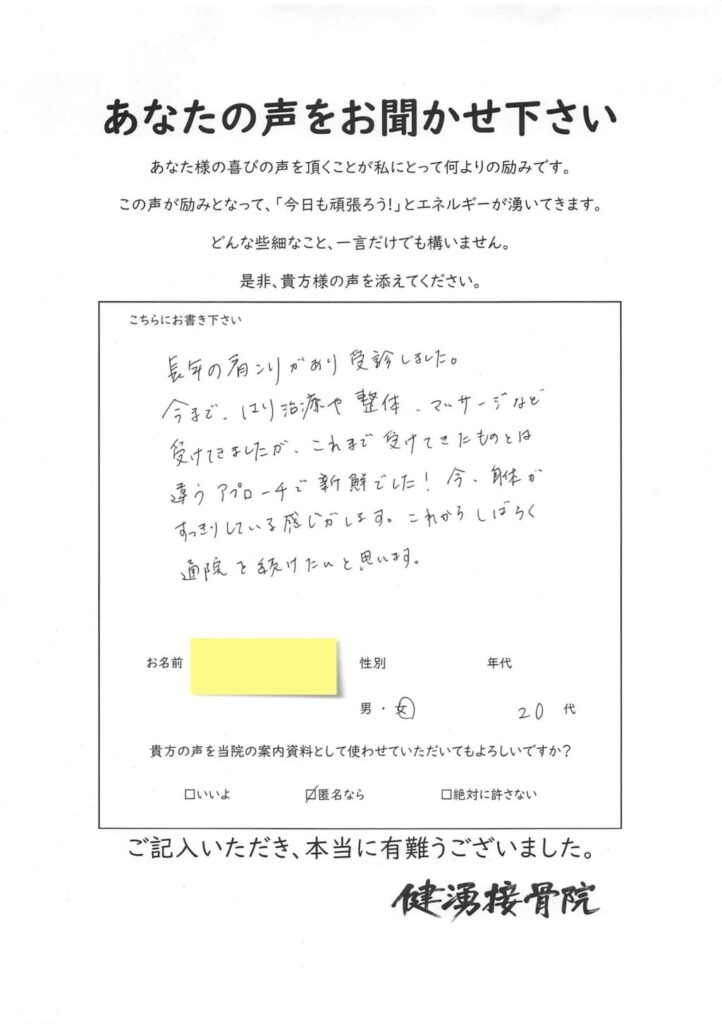 あなたの声をお聞かせ下さい
あなた様の喜びの声を頂くことが私にとって何よりの励みです。
この声が励みとなって、「今日も頑張ろう!」とエネルギーが湧いてきます。
どんな些細なこと、一言だけでも構いません。
是非、貴方様の声を添えてください。
こちらにお書き下さい
長年の肩こりがあり受診しました。
今まで、はり治療や整体、マッサージなど
受けてきましたが、これまで受けてきたものとは
違うアプローチで新鮮でした!今、身体が
すっきりしている感じがします。これからしばらく
通院を続けたいと思います。
お名前 性別 年代
男・女 20代
貴方の声を当院の案内資料として使わせていただいてもよろしいですか?
□いいよ ☑匿名なら □絶対に許さない
ご記入いただき、本当に有難うございました。
健湧接骨院